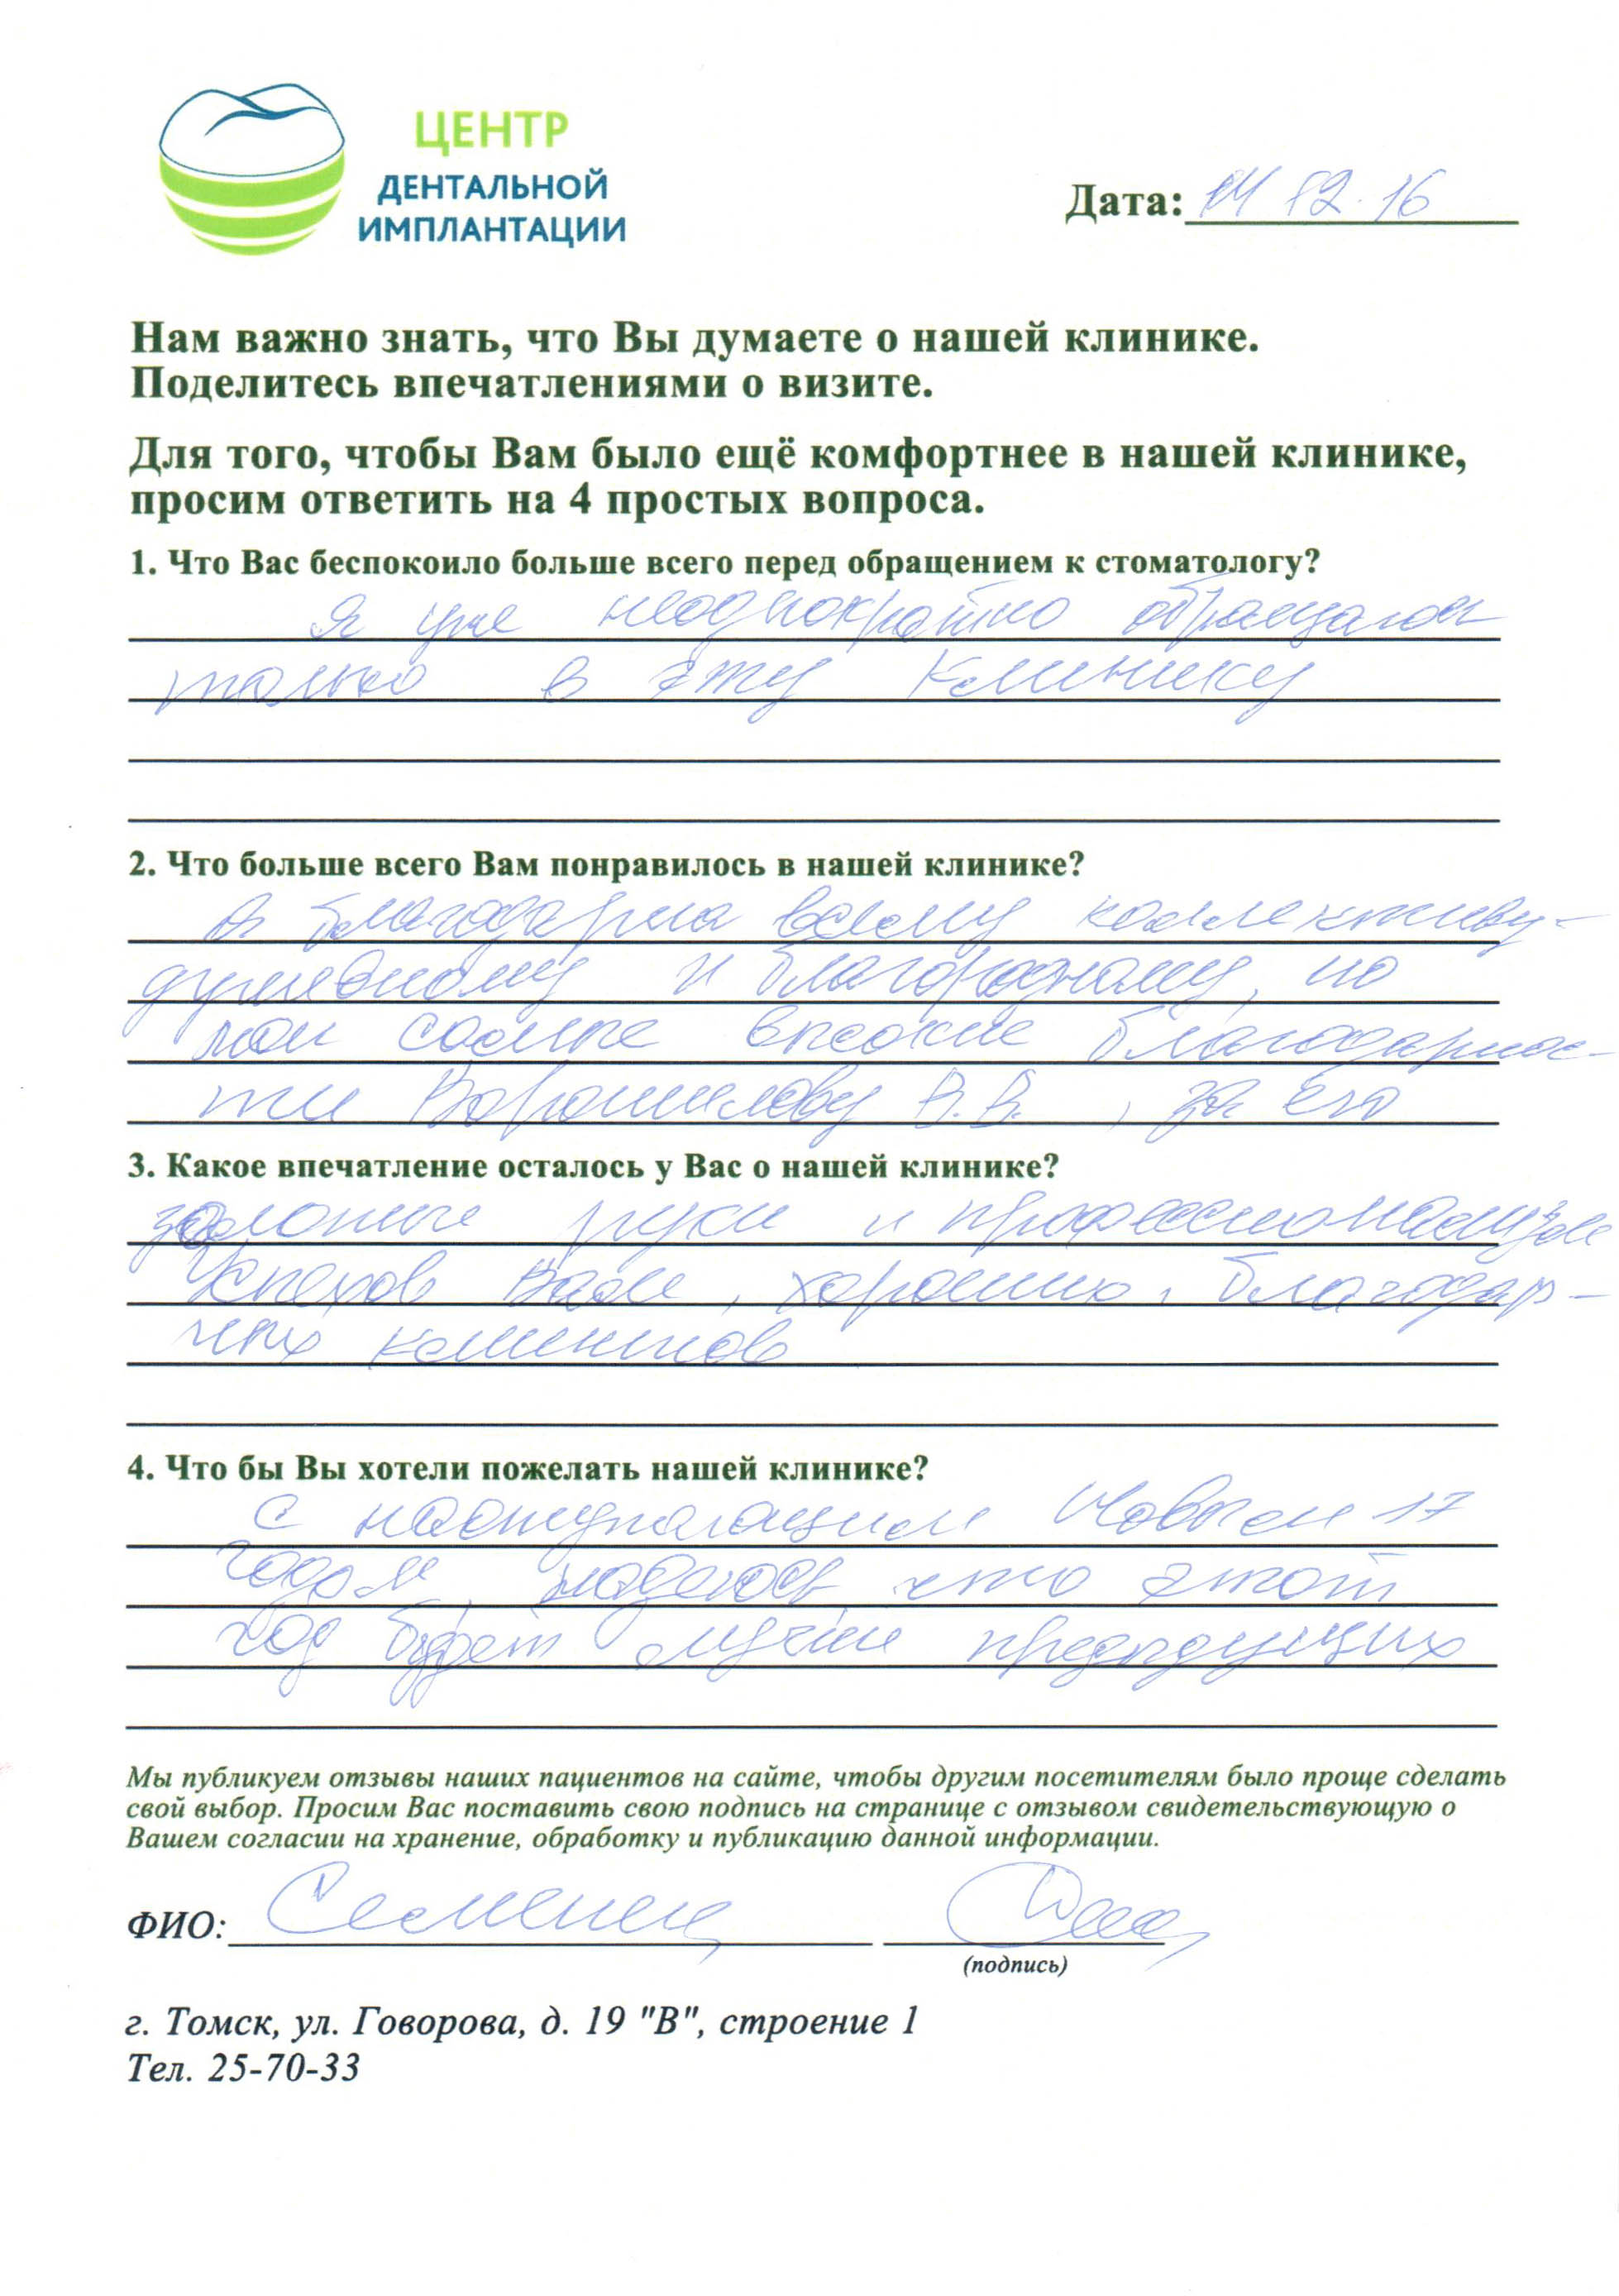 ЦЕНТР
ДЕНТАЛЬНОЙ
ИМПЛАНТАЦИИ
Дата: 14 12.16
Нам важно знать, что Вы думаете о нашей клинике.
Поделитесь впечатлениями о визите.
Для того, чтобы Вам было ещё комфортнее в нашей клинике,
просим ответить на 4 простых вопроса.
1. Что Вас беспокоило больше всего перед обращением к стоматологу?
Я уже неоднократно обращался
только в эту клинику
2. Что больше всего Вам понравилось в нашей клинике?
благодарна всему коллективу-
и благородному, но
мои самые высокие благодарнос-
ти Ворошилову В.В., за его
3. Какое впечатление осталось у Вас о нашей клинике?
золотые руки и профессионализм
Успехов Вам, хороших, благодар-
ных клиентов
4. Что бы Вы хотели пожелать нашей клинике?
С наступающим Новым 17
годом, надеюсь, что этот
год будет лучше предыдущих
Мы публикуем отзывы наших пациентов на сайте, чтобы другим посетителям было проще сделать
свой выбор. Просим Вас поставить свою подпись на странице с отзывом свидетельствующую о
Вашем согласии на хранение, обработку и публикацию данной информации.
ФИО: Семенец
(подпись)
г. Томск, ул. Говорова, д. 19 "В", строение 1
Тел. 25-70-33